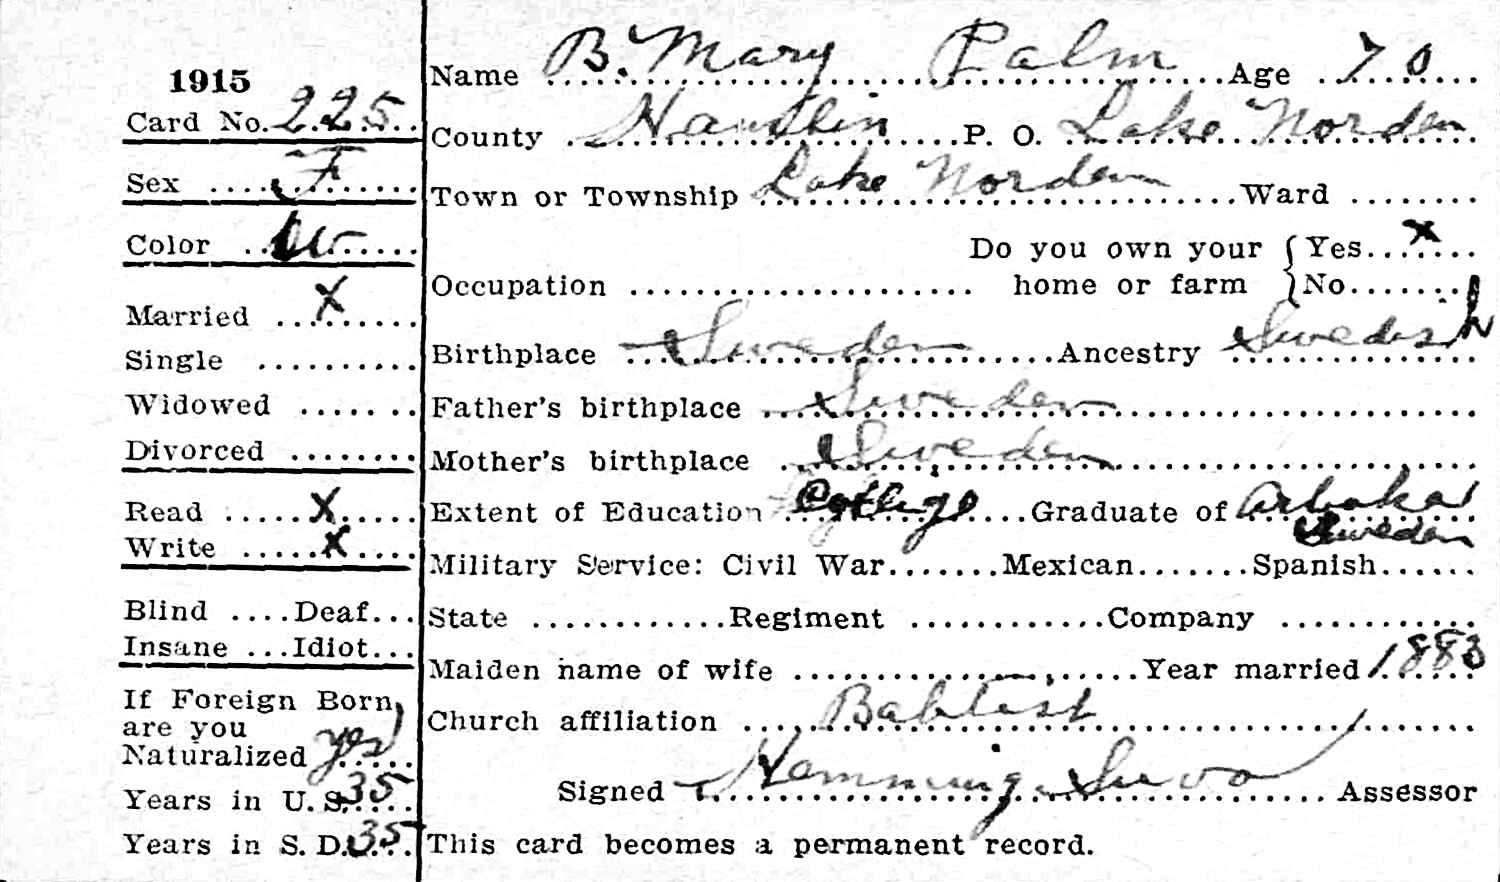 1915
Card No. 225
Sex F
Color W
Married X
Single
Widowed
Divorced
Read X
Write X
Blind Deaf
Insane Idiot
If Foreign Born,
are you
Naturalized yes
Years in U. S. 35
Years in S. D. 35
Name B. Mary Palm Age 70
County Hamlin P. O. Lake Norden
Town or Township Lake Norden Ward
Do you own your Yes X
Occupation home or farm No
Birthplace Sweden Ancestry Swedish
Father's birthplace Sweden
Mother's birthplace Sweden
Extent of Education Graduate of
Sweden
Military Service: Civil War Mexican Spanish
State Regiment Company
Maiden name of wife Year married 1883
Church affiliation Babtist
Signed Hemming Assessor
This card becomes a permanent record.